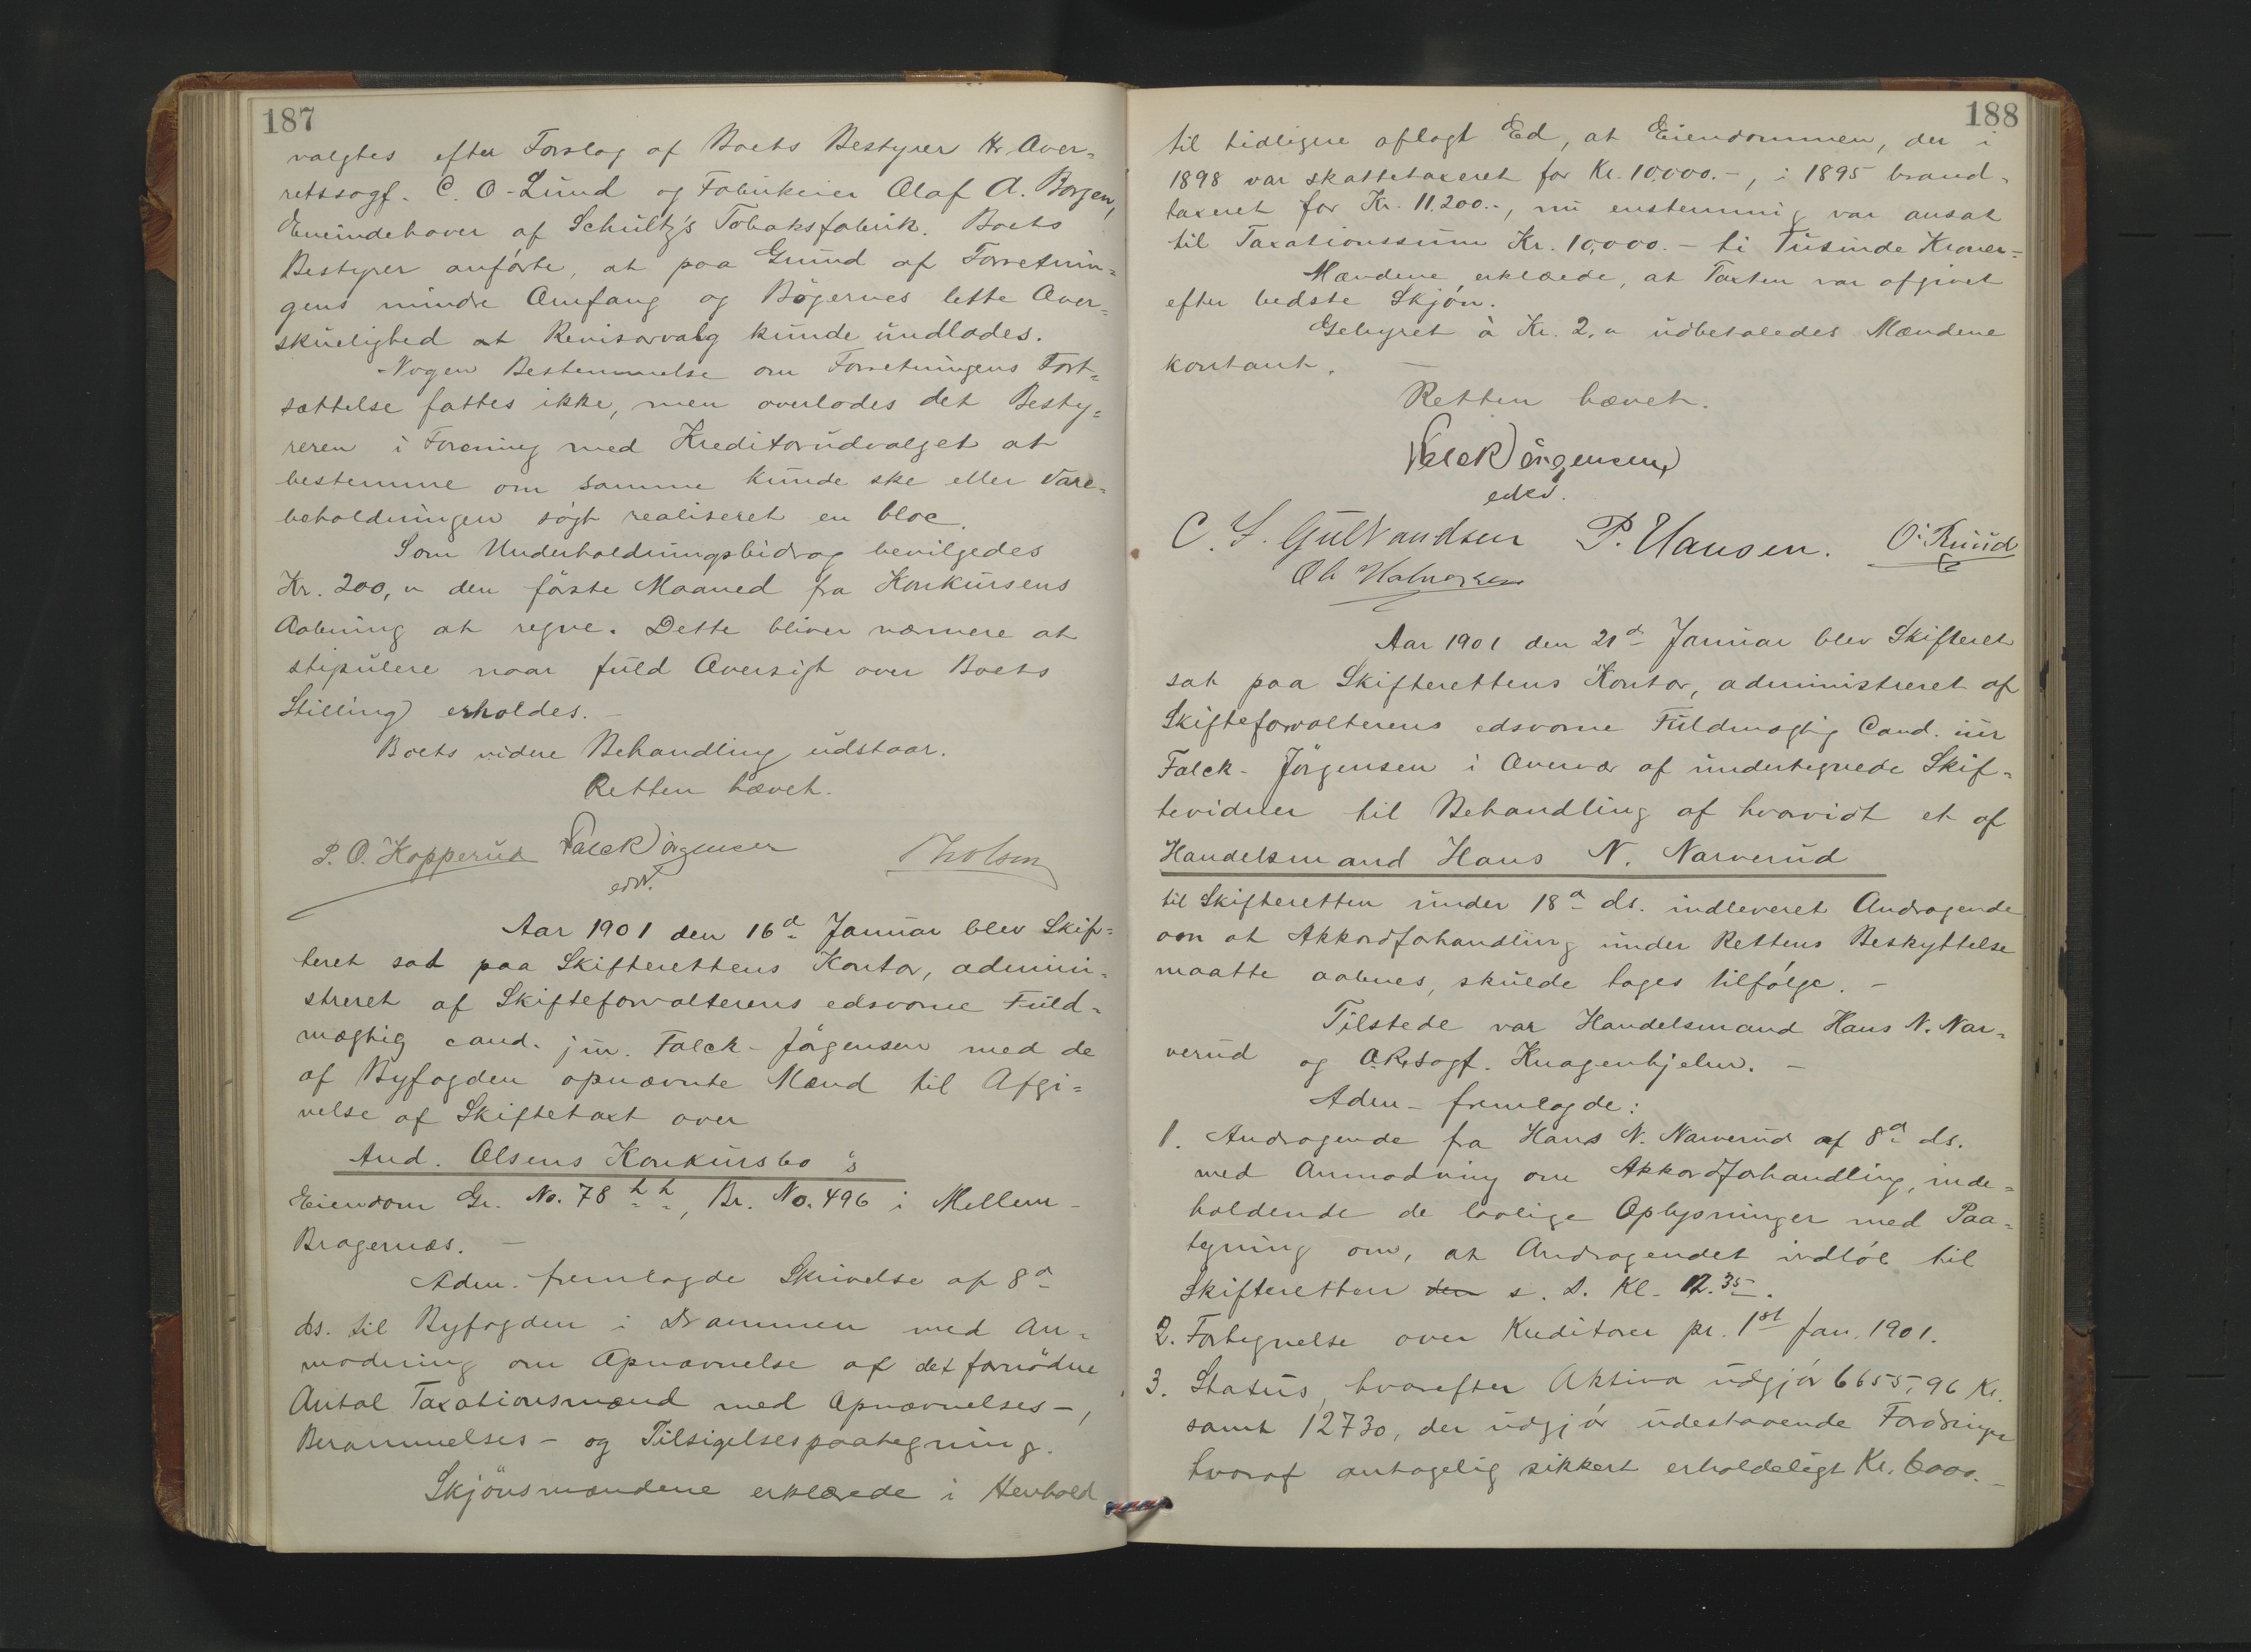 187
valgtes efter Forslag af Boets Bestyrer Hr Over-
retssagf. C. O. Lund og Fabrikeier Olaf A. Borgen,
Eneindehaver af Schultz's Tobaksfabrik. Boets
Bestyrer anførte, at paa Grund af Forretnin-
gens mindre Omfang og Bøgernes lette Over-
skuelighed at Revisorvalg kunde undlades.
Nogen Bestemmelse om Forretningens Fort-
sættelse fattes ikke, men overlodes det Besty-
reren i Forening med Kreditorudvalget at
bestemme om samme kunde ske eller Vare-
beholdningen søgt realiseret en bloc.
Som Underholdningsbidrag bevilgedes
Kr. 200,- den første Maaned fra Konkursens
Aabning at regne. Dette bliver nærmere at
stipulere naar fuld Oversigt over Boets
Stilling erholdes. -
Boets videre Behandling udstaar.
Retten hævet.
P. O. Kopperud Falck Jørgensen
edsv.
Aar 1901 den 16d Januar blev Skif-
teret sat paa Skifterettens Kontor, admini-
streret af Skifteforvalterens edsvorne Fuld-
mægtig cand. jur. Falck-Jørgensen med de
af Byfogden opnævnte Mænd til Afgi-
velse af Skiftetaxt over
And. Olsens Konkursbo's
Eiendom Gr. No. 78 h h, Br. No. 496 i Mellem-
Bragernæs. -
Adm. fremlagde Skrivelse af 8d
ds. til Byfogden i Drammen med An-
modning om Opnævnelse af det fornødne
Antal Taxationsmænd med Opnævnelses-,
Berammelses- og Tilsigelsespaategning.
Skjønsmændene erklærede i Henhold
188
til tidligere aflagt Ed, at Eiendommen, der i
1898 var skattetaxeret for Kr. 10,000.-, i 1895 brand-
taxeret for Kr. 11.200.-, nu enstemmig var ansat
til Taxationssum Kr. 10,000.- ti Tusinde Kroner-
Mændene erklærede, at Taxten var afgivet
efter bedste Skjøn.
Gebyret à Kr. 2,- udbetaledes Mændene
kontant. -
Retten hævet.
Falck Jørgensen
edsv.
C. F. Gulbrandsen P. Hansen. O. Ruud
Aar 1901 den 21d Januar blev Skifteret
sat paa Skifterettens Kontor, administreret af
Skifteforvalterens edsvorne Fuldmægtig Cand. jur
Falck-Jørgensen i Overvær af undertegnede Skif-
tevidner til Behandling af hvorvidt et af
Handelsmand Hans N. Narverud
til Skifteretten under 18d ds. indleveret Andragende
om at Akkordforhandling under Rettens Beskyttelse
maatte aabnes, skulde tages tilfølge. -
Tilstede var Handelsmand Hans N. Nar-
verud og O.R.sagf. Knagenhjelm. -
Adm- fremlagde:
1. Andragende fra Hans N. Narverud af 8d ds.
med Anmodning om Akkordforhandling, inde-
holdende de lovlige Oplysninger med Paa-
tegning om, at Andragendet indløb til
Skifteretten den s. D. Kl. 12.35.
2. Fortegnelse over Kreditorer pr. 1st Jan. 1901.
3. Status, hvorefter Aktiva udgjør 6655,96 Kr.
samt 12730, der udgjør udestaaende Fordringer
hvoraf antagelig sikkert erholdeligt Kr. 6000.-